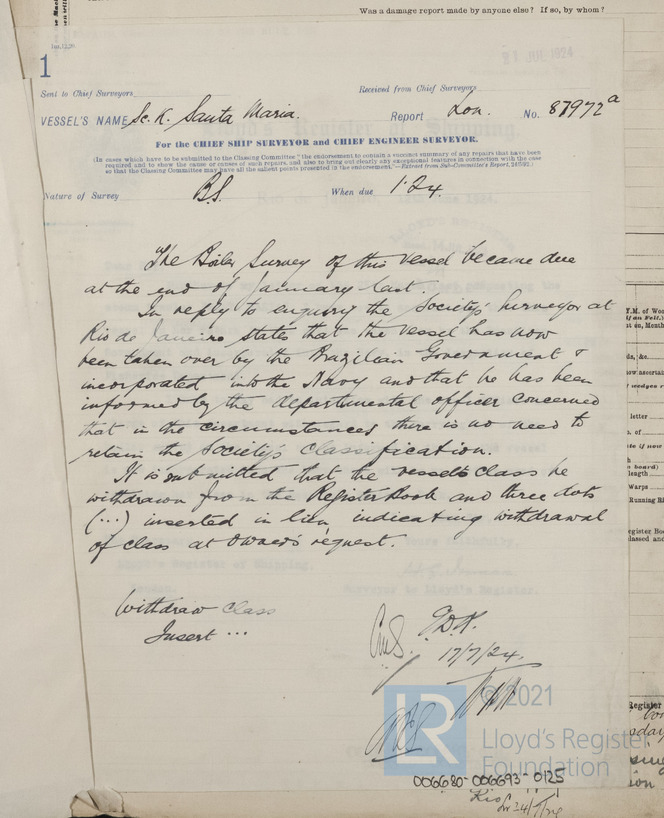 Was a damage report made by anyone else? If so, by whom?
21 JUL 1924
1
Sent to Chief Surveyors
Received from Chief Surveyors
VESSEL'S NAME Sc. K. Santa Maria. Report Lon. No. 87972a
For the CHIEF SHIP SURVEYOR and CHIEF ENGINEER SURVEYOR.
(In cases which have to be submitted to the Classing Committee "the endorsement to contain a succinct summary of any repairs that have been
required and to show the cause or causes of such repairs, and also to bring out clearly any exceptional features in connection with the case
so that the Classing Committee may have all the salient points presented in the endorsement."—Extract from Sub-Committee's Report,
Nature of Survey B.S. When due 1.24.
The Boiler Survey of this vessel became due
at the end of January last.
In reply to enquiry the Society's Surveyor at
Rio de Janeiro states that the vessel has now
been taken over by the Brazilian Government &
incorporated into the Navy and that he has been
informed by the departmental officer concerned
that in the circumstances there is no need to
retain the Society's classification.
It is submitted that the vessel's class be
withdrawn from the Register Book and three dots
(...) inserted in lieu, indicating withdrawal
of class at Owner's request.
Withdraw class
Insert ...
17/7/24.
© 2021
LR
Lloyd's Register
Foundation
006680-006693-0125
Rio